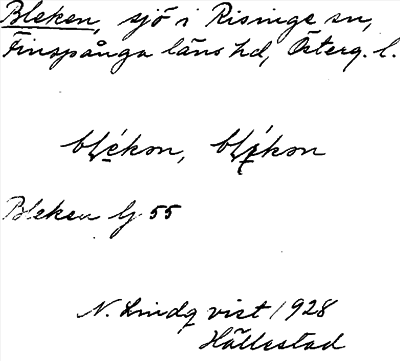 Bleken, sjö i Risinge sn,
Finspånga läns hd, Österg. l.
Bleken bl. 55
N. Lindqvist 1928
Hällestad